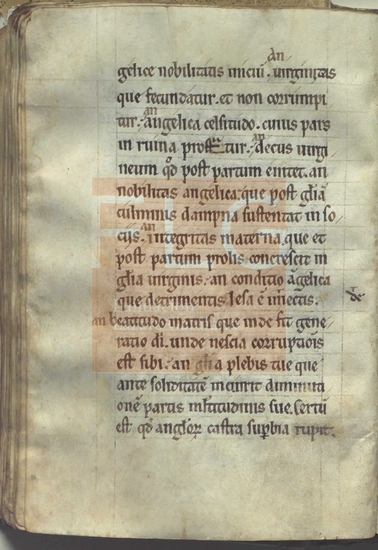 an
gelice nobilitatis iniciu᷑. uirginitas
que fecundatur. et non corrumpi
tur. an angelica celsitudo. cuius pars
in ruina tur. an decus uirgi
neum qd post partum enitet. an
nobilitas angelica. que post gl̃iã
culminis dampna sustentat in so
ciis. an integritas materna. que et
post partum prolis concrescit in
gl̃ia uirginis. an conditio angelica
que detrimentis lesa ẽ iniectis.
an beatitudo matris que inde fit gene
ratio di. unde nescia corruptiõis
est sibi. an gl̃ia plebis tue que
ante soliditatẽ incurit diminuti
onẽ partis multitudinis sue. sertũ
est qd anglor castra supbia rupit.